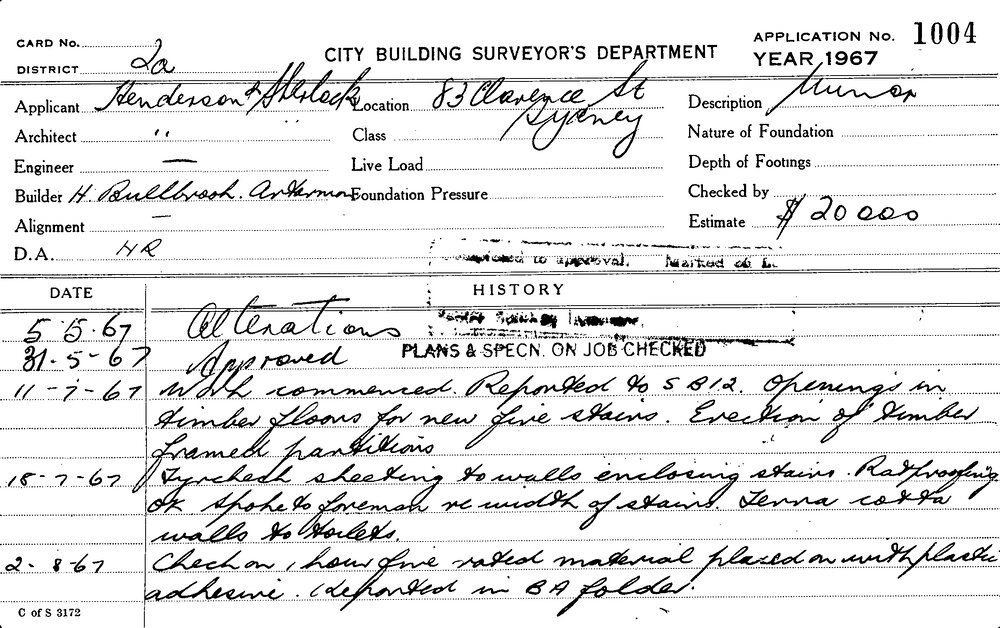 CARD No.
CITY BUILDING SURVEYOR'S DEPARTMENT
APPLICATION No. 1004
DISTRICT 2a
YEAR 1967
Applicant Henderson & Sherlock
Location 83 Clarence St
Sydney
Description Minor
Architect "
Class
Nature of Foundation
Engineer —
Live Load
Depth of Footings
Builder H. Bullbrook
Foundation Pressure
Checked by
Alignment —
Estimate $20000
D.A. HR
to approval. Marked
DATE
HISTORY
5 5.67 Alterations
31-5-67 Approved
PLANS & SPECN. ON JOB CHECKED
11-7-67 Work commenced. Reported to SB12. Openings in
timber floors for new fire stairs. Erection of timber
framed partitions
18-7-67 Fyrchek sheeting to walls enclosing stairs. Ratproofing
OK Spoke to foreman re width of stairs. Terra cotta
walls to toilets.
2-8-67 Check on 1 hour fire rated material placed on with plastic
adhesive. (Reported in BA folder.
C of S 3172